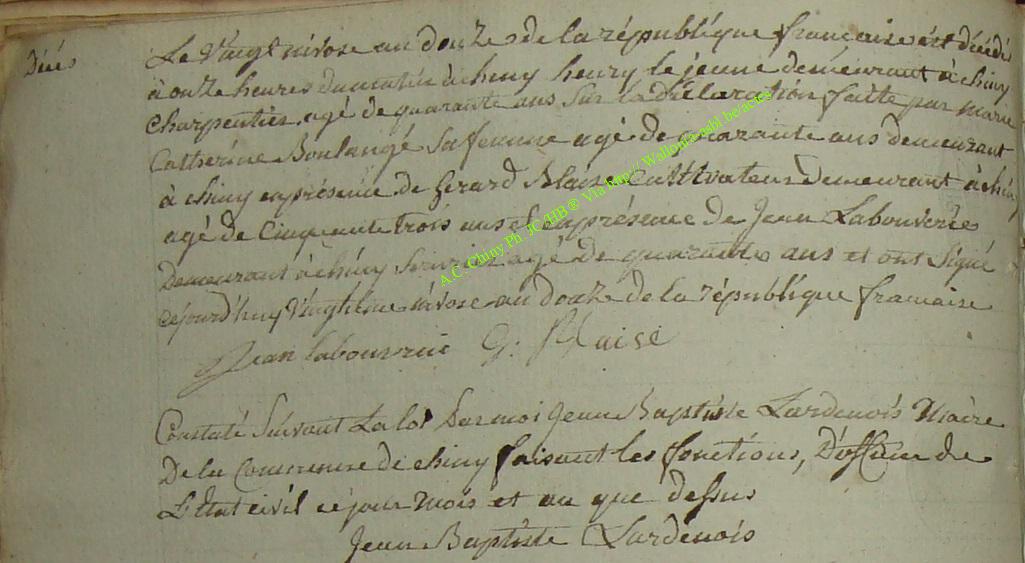 Décés
Le Vaingt nivose an douze de la république francaise est décédé
à onze heures du matin à chiny henry le jeune demeurant à chiny
charpentier agé de quarante ans Sur la déclaration faite par marie
Catherine Boulangé Safemme agé de quarante ans demeurant
à chiny enprésence de Gerard Blaise Cultivateur Demeurant à chiny
agé de Cinquante trois ans et enprésence de Jean Labouverie
Demeurant à chiny agé de quarante ans et ont Signé
cejourd'huy Vingtieme nivose an douze de la république francaise
Jean labouverie G. Blaise
Constaté Suivant La loi Par moi Jean Baptiste Lardenois Maire
De la Commune de chiny faisant les fonctions, D'officier de
L'Etat civil ce jour mois et an que dessus
Jean Baptiste Lardenois
A.C. Chiny Ph JC/HB ® Via http:// Wallonia-asbl.be/actes